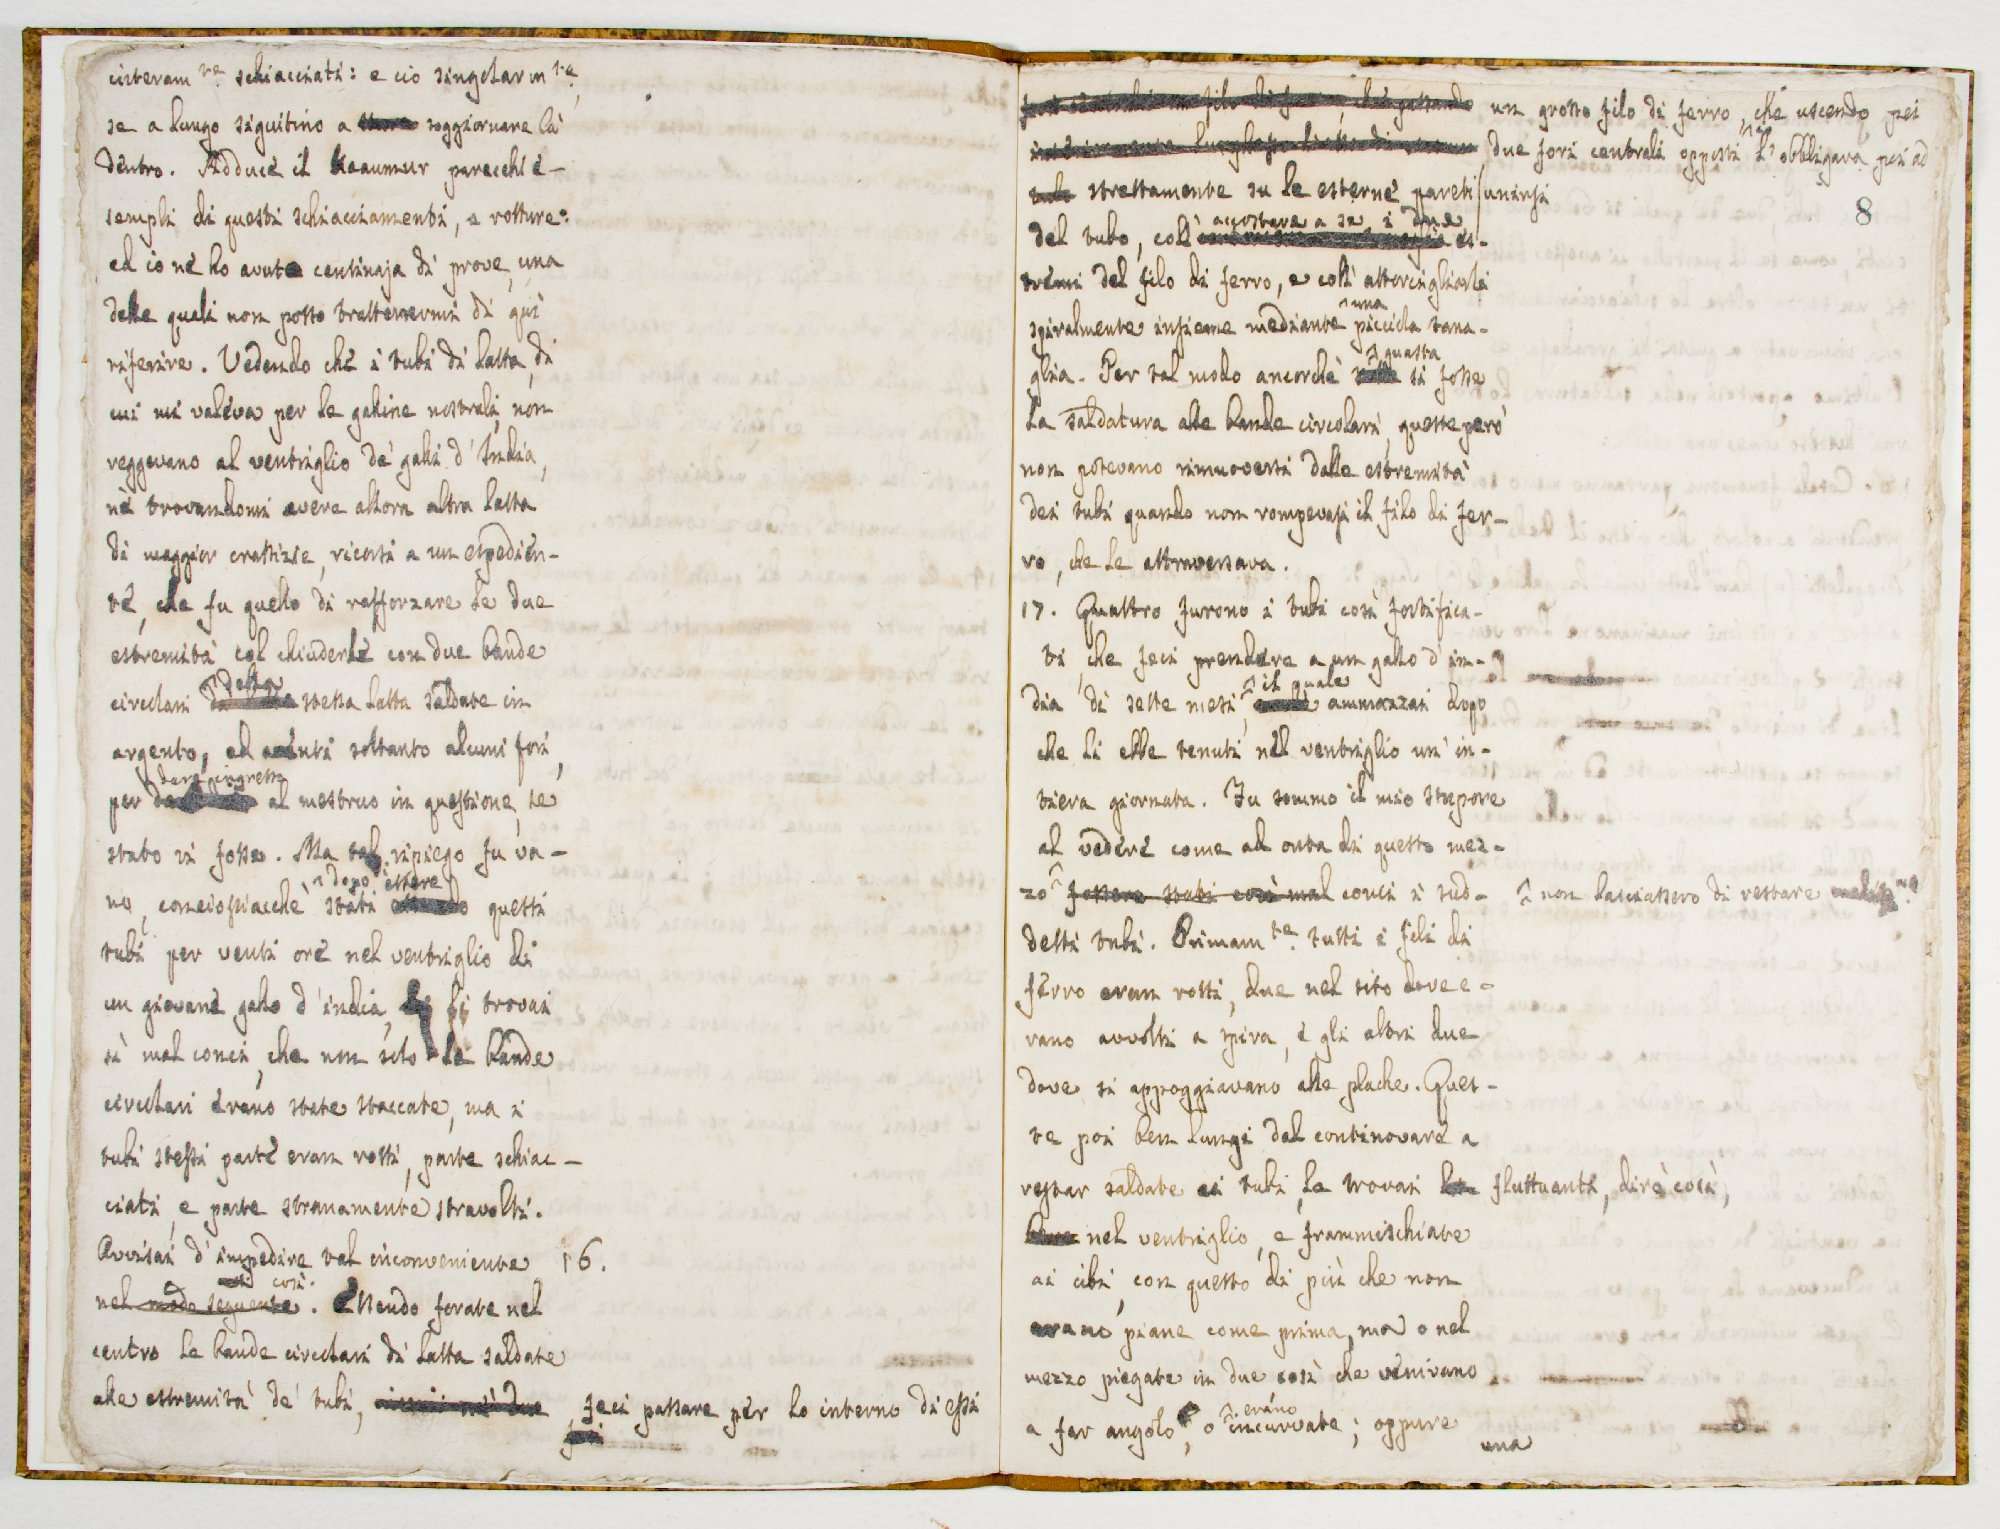 cisteram.te schiacciati: e ciò singolarm.te,
se a lungo siguitino a soggiornare là
dentro. Adduce il Reaumur parecchi e-
sempli di questi schiacciamenti, e rotture:
ed io nè ho avute centinaja di prove, una
delle quali non posso trattenermi di quì
riferire. Vedendo che i tubi di latta, di
cui mi valeva per le galline nostrali, non
reggevano al ventriglio de' galli d'India,
nè trovandomi avere allora altra latta
di maggior crassizie, ricorsi a un espedien-
te, che fu quello di rafforzare le due
estremità col chiuderle con due bande
circolari della stessa latta saldate in
argento, ed aventi soltanto alcuni fori,
per dare ingresso al mestruo in questione, se
stato vi fosse. Ma tal ripiego fu va-
no, conciossiacchè stati essere dopo questi
tubi per venti ore nel ventriglio di
un giovane gallo d'india, li trovai
sì mal conci, che non solo le bande
circolari erano state staccate, ma i
tubi stessi parte eran rotti, parte schiac-
ciati, e parte stranamente stravolti.
Avvisai d'impedire tal inconveniente 16.
nel modo seguente così. Essendo forate nel
centro le bande circolari di latta saldate
alle estremità de' tubi, feci passare per lo interno di essi
8
un grosso filo di ferro, che uscendo pei
due fori centrali opposti l'obbligava poi ad
unirsi
strettamente su le esterne pareti
del tubo, così accostare a se i due es-
tremi del filo di ferro, e così attorcigliarli
spiralmente insieme mediante una picciola tana-
glia. Per tal modo ancorchè guasta si fosse
la saldatura alle bande circolari, queste però
non potevano rimuoversi dalle estremità
dei tubi quando non rompevasi il filo di fer-
ro, che le attraversava.
17. Quattro furono i tubi così fortifica-
ti, che feci prendere a un gallo d'in-
dia di sette mesi, il quale ammazzai dopo
che li ebbe tenuti nel ventriglio un' in-
tiera giornata. Fu sommo il mio stupore
al vedere come ad onta di questo mez-
zo fossero stati così mal conci i sud- non lasciassero di restare
detti tubi. Primam.te tutti i fili di
ferro eran rotti, due nel sito dove e-
rano avvolti a spira, e gli altri due
dove si appoggiavano alle placche. Ques-
te poi ben lungi dal continovare a
restar saldate ai tubi, le trovai fluttuanti, dirè così,
nel ventriglio, e frammischiate
ai cibi, con questo di più che non
erano piane come prima, ma o nel
mezzo piegate in due così che venivano
a far angolo, o erano incurvate; oppure
una